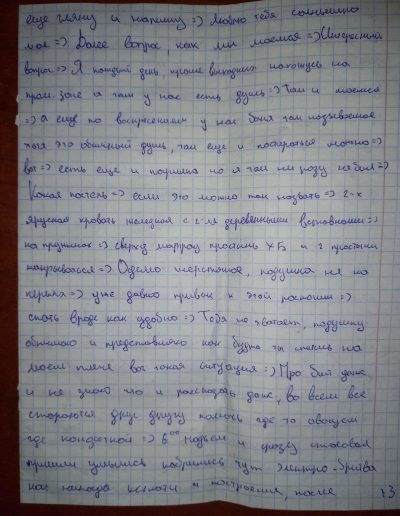 еще гляну и напишу=) Люблю тебя солнышко
мое=) Далее вопрос, как мы моемся=) Интересный
вопрос=) Я каждый день, кроме выходных нахожусь на
пром. зоне а там у нас есть душ=) Там и моемся
=) а еще по воскресеньям у нас баня так называемая
хотя это обычный душ, там еще и постираться можно=)
вот=) есть еще и но я там ни разу не был=)
Какая постель=) если это можно так назвать=) 2-х
ярусная кровать железная с 2-мя деревянными
на пружинах=) сверху матрац простынь ХБ и 2 простыни
=) Одеяло шерстяное, подушка не из
перьев=) уже давно привык к этой роскоши=)
спать вроде как удобно=) Тебя не хватает, подушку
обнимаю и представляю как будто ты спишь на
моем плече вот такая ситуация=) Про быт даже
и не знаю что и рассказать даже, во всем все
стараются друг другу помочь где то овощем
где конфеткой=) 6⁰⁰ подъем и сразу столовая
пришли умылись побрились тут электро-бритва
как и построения, после
13